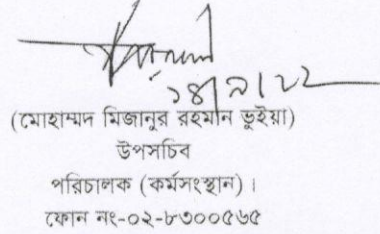 ১৪/৯/২২
(মোহাম্মদ মিজানুর রহমান ভুইয়া)
উপসচিব
পরিচালক (কর্মসংস্থান)।
ফোন নং-০২-৮৩০০৫৬৫